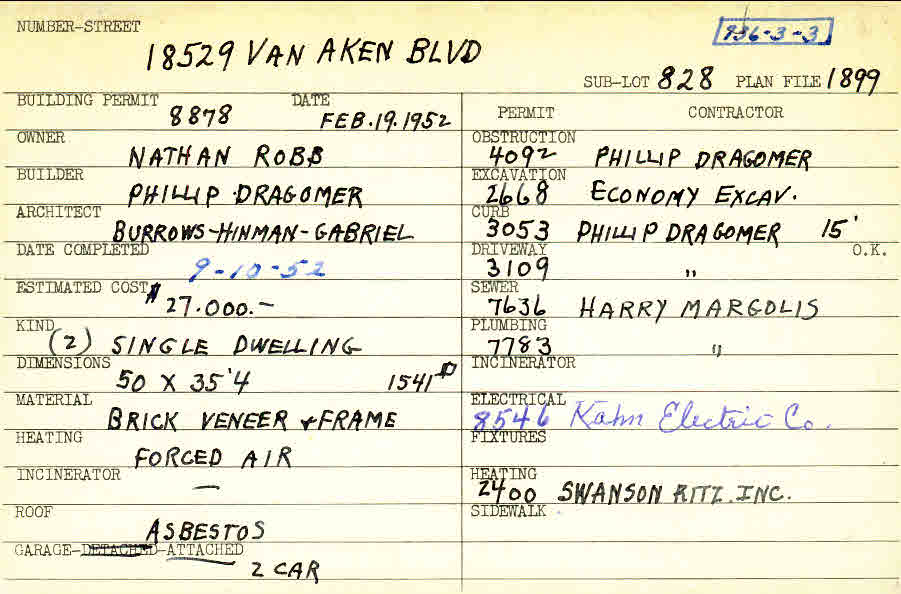 NUMBER-STREET
18529 VAN AKEN BLVD
936-3-3
SUB-LOT 828 PLAN FILE 1899
BUILDING PERMIT 8878 DATE FEB.19.1952
OWNER NATHAN ROBB
BUILDER PHILLIP DRAGOMER
ARCHITECT BURROWS-HINMAN-GABRIEL
DATE COMPLETED 9-10-52
ESTIMATED COST $27.000.-
KIND (2) SINGLE DWELLING
DIMENSIONS 50 X 35'4 1541 #
MATERIAL BRICK VENEER & FRAME
HEATING FORCED AIR
INCINERATOR —
ROOF ASBESTOS
GARAGE-DETACHED-ATTACHED 2 CAR
PERMIT CONTRACTOR
OBSTRUCTION 4092 PHILLIP DRAGOMER
EXCAVATION 2668 ECONOMY EXCAV.
CURB 3053 PHILLIP DRAGOMER 15'
DRIVEWAY 3109 " O.K.
SEWER 7636 HARRY MARGOLIS
PLUMBING 7783 "
INCINERATOR
ELECTRICAL 8546 Kahn Electric Co.
FIXTURES
HEATING 2400 SWANSON RITZ. INC.
SIDEWALK